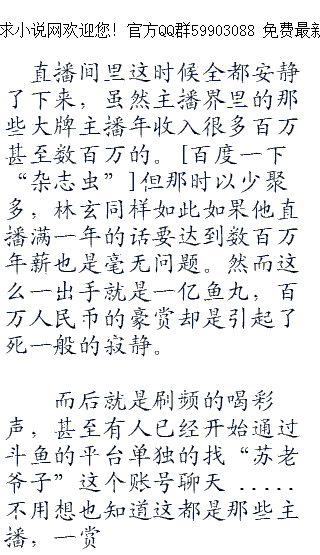 求小说网欢迎您！官方QQ群59903088 免费最新
直播间里这时候全都安静
了下来，虽然主播界里的那
些大牌主播年收入很多百万
甚至数百万的。[百度一下
“杂志虫”]但那时以少聚
多，林玄同样如此如果他直
播满一年的话要达到数百万
年薪也是毫无问题。然而这
么一出手就是一亿鱼丸，百
万人民币的豪赏却是引起了
死一般的寂静。
而后就是刷频的喝彩
声，甚至有人已经开始通过
斗鱼的平台单独的找“苏老
爷子”这个账号聊天 .....
不用想也知道这都是那些主
播，一赏